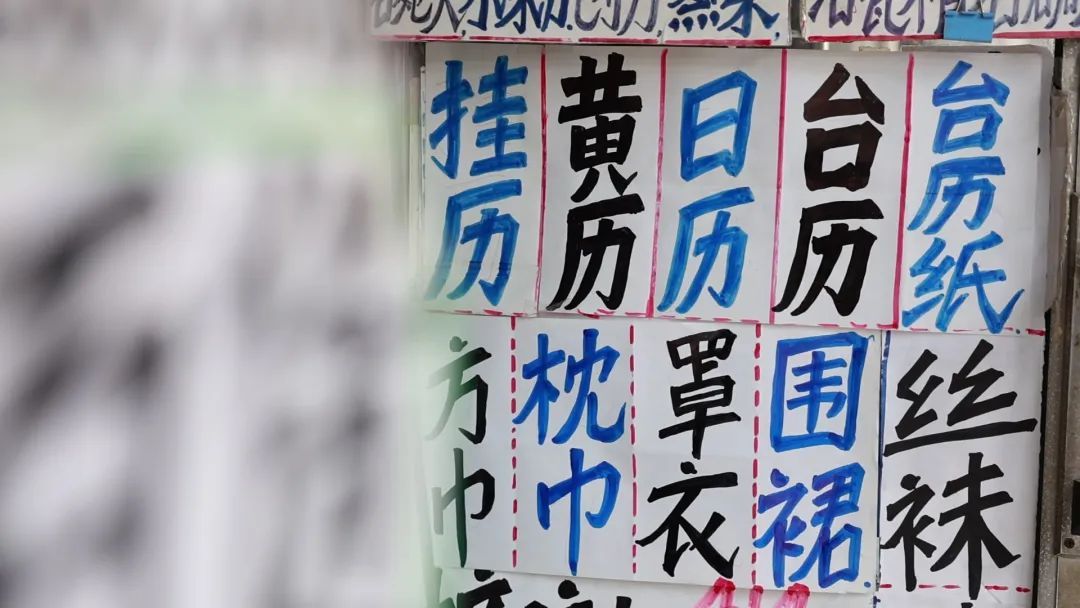 挂历
黄历
日历
台历
台历纸
方巾
枕巾
罩衣
围裙
丝袜